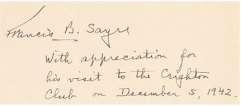 Francis B. Sayre
With appreciation for
his visit to the Crighton
Club on December 5, 1942.